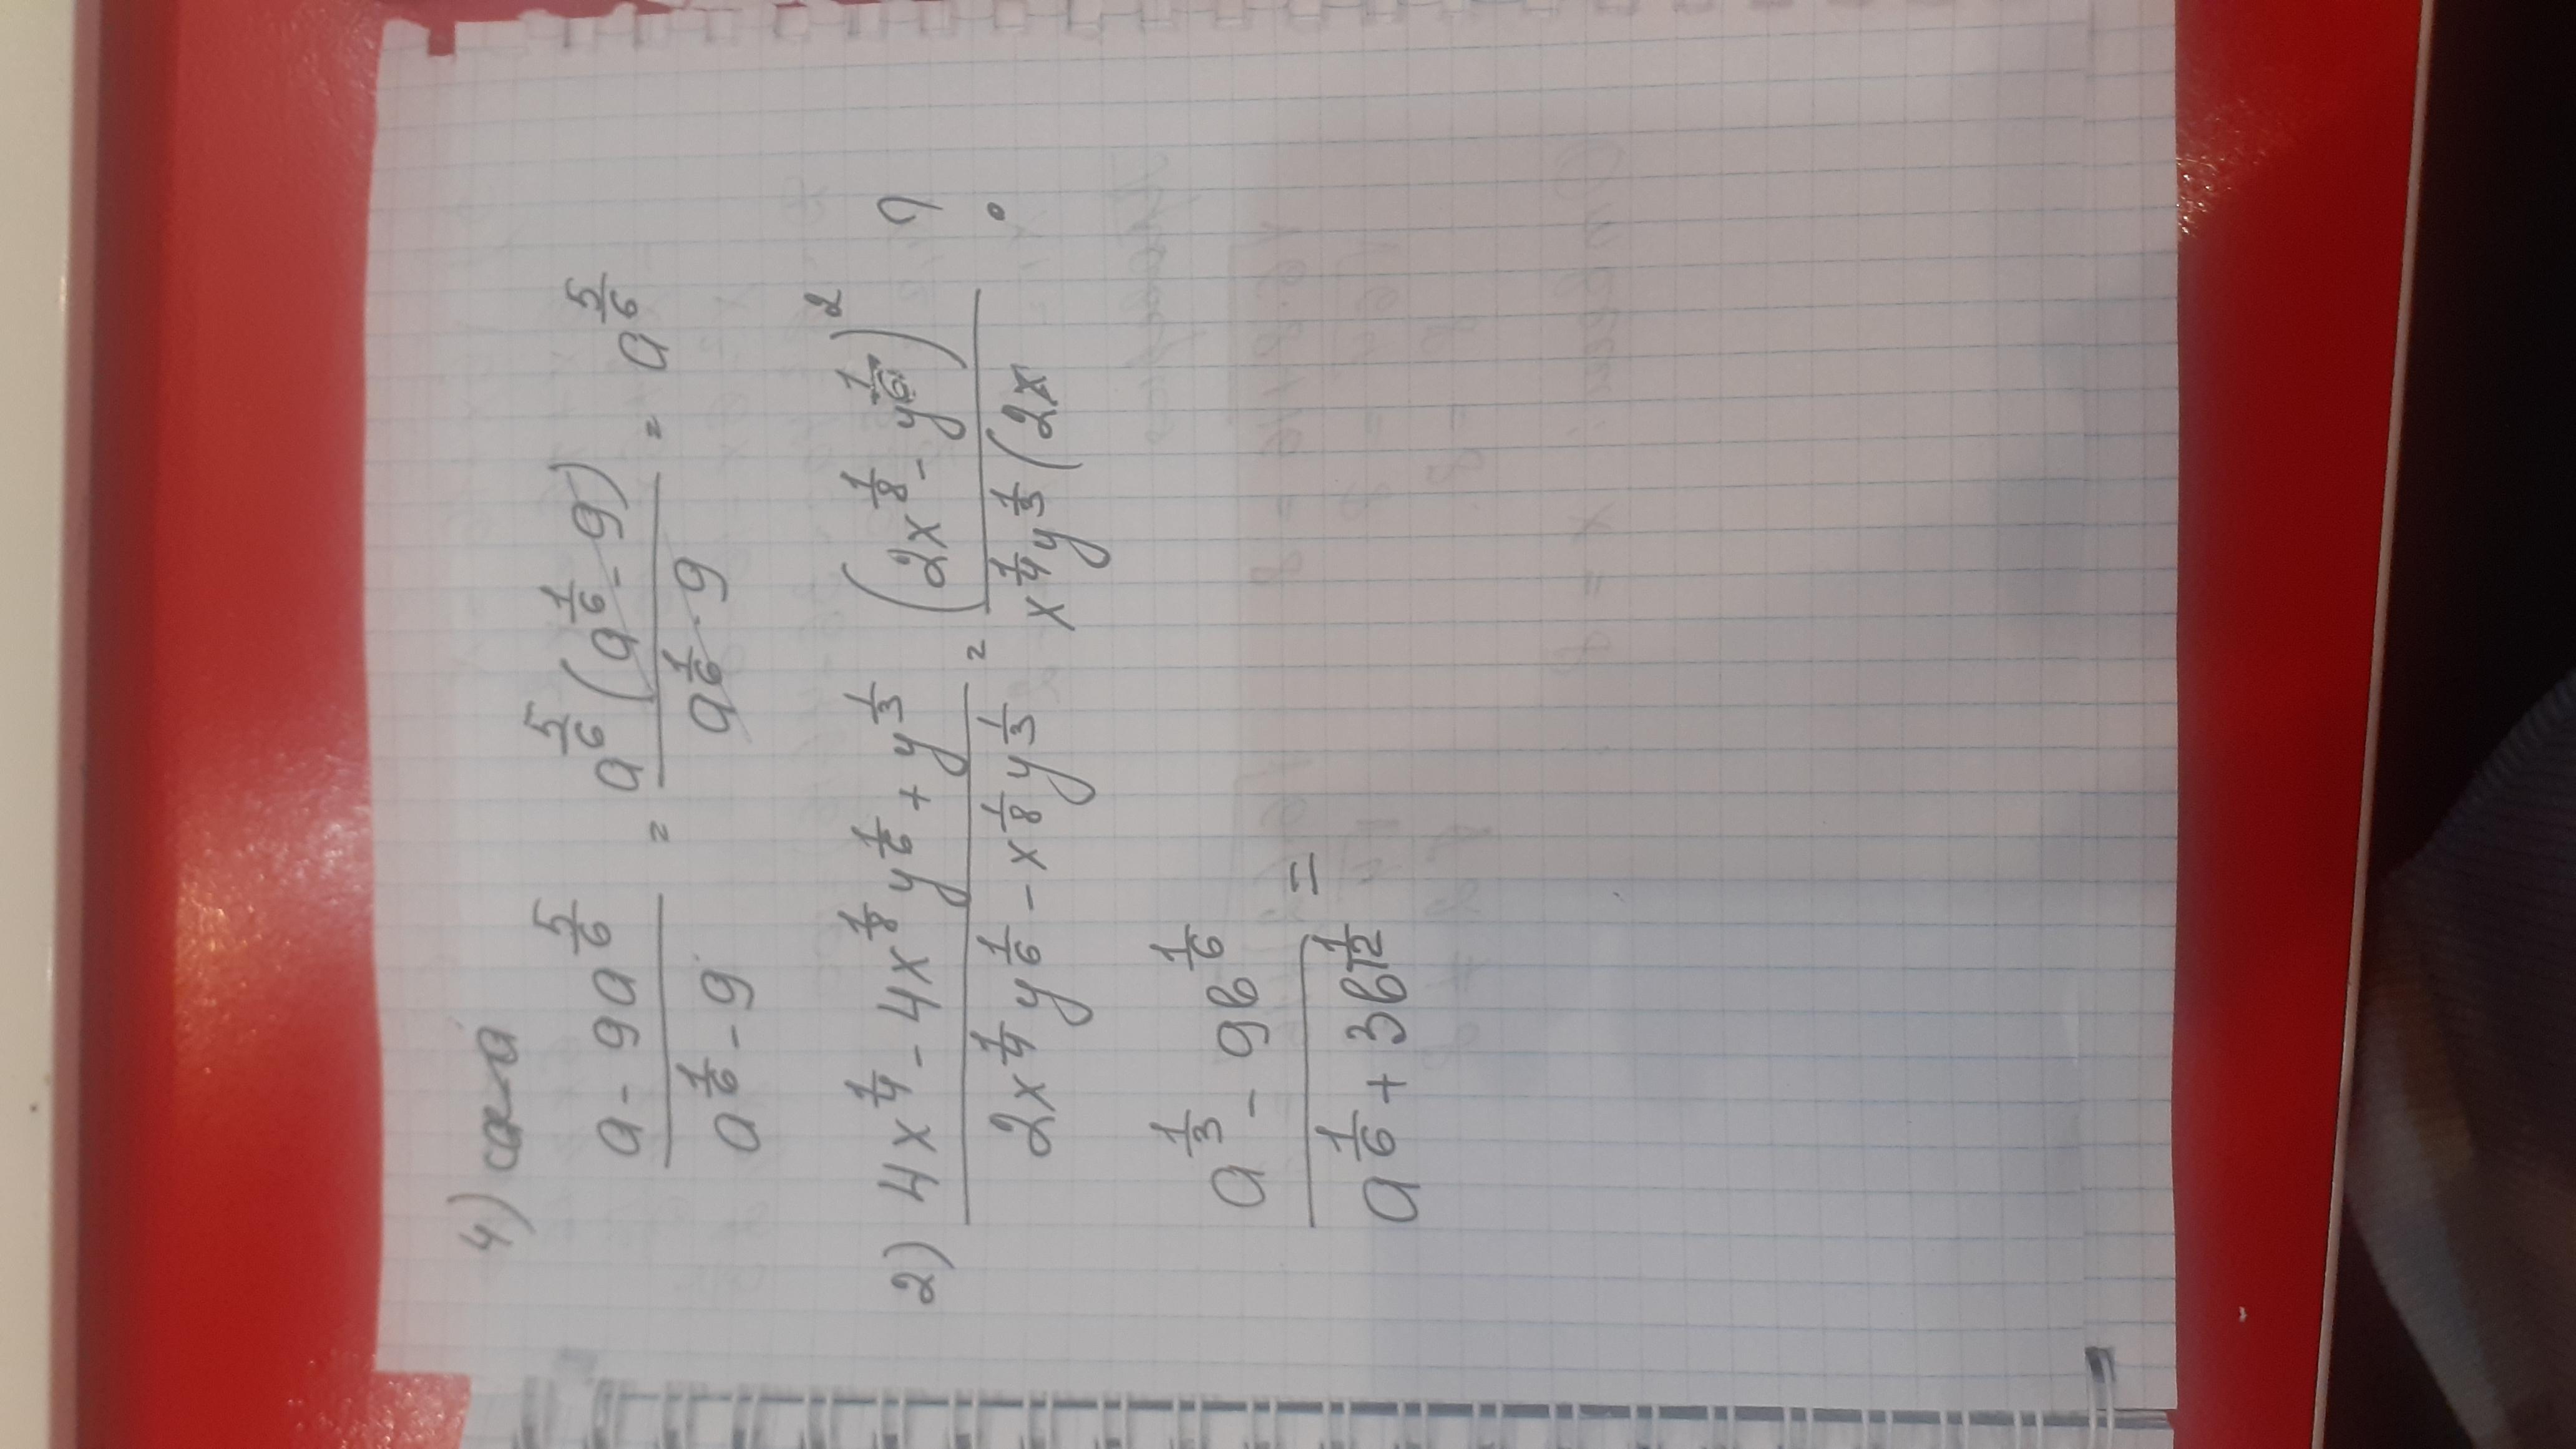 4)
(a - 9a^(5/6))/(a^(1/6) - 9) = (a^(5/6)(a^(1/6) - 9))/(a^(1/6) · 9) = a^(5/6)
2) (4x^(1/4) - 4x^(1/8)y^(1/6) + y^(1/3))/(2x^(1/4)y^(1/6) - x^(1/8)y^(1/3)) = (2x^(1/8) - y^(1/6))^2/(x^(1/4)y^(1/3)(2x ?
(a^(1/3) - 9b^(1/6))/(a^(1/6) + 3b^(1/12)) =